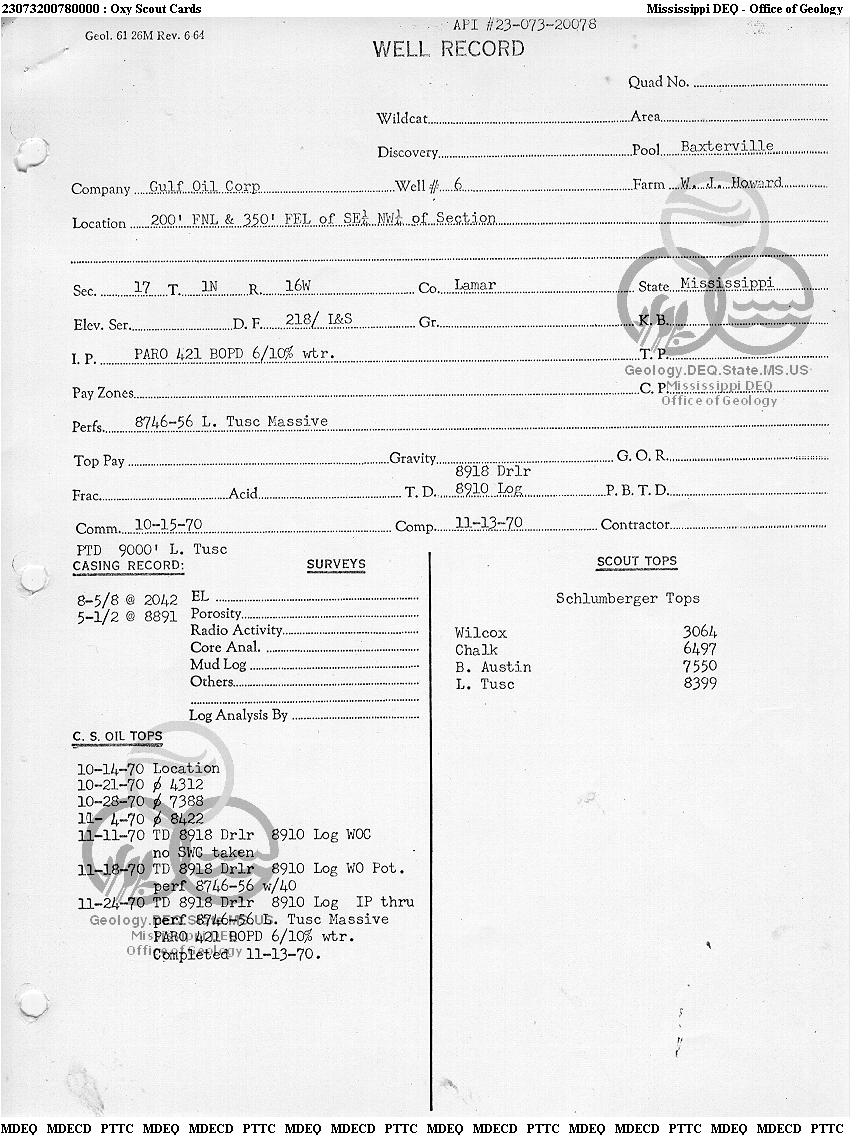 23073200780000 : Oxy Scout Cards Mississippi DEQ - Office of Geology
API #23-073-20078
Geol. 61 26M Rev. 6-64
WELL RECORD
Quad No.
Wildcat Area
Discovery Pool Baxterville
Company Gulf Oil Corp Well # 6 Farm W. J. Howard
Location 200' FNL & 350' FEL of SE¼ NW¼ of Section
Sec. 17 T. 1N R. 16W Co. Lamar State Mississippi
Elev. Ser. D. F. 218/ L&S Gr. K. B.
I. P. PARO 421 BOPD 6/10% wtr. T. P.
Geology.DEQ.State.MS.US
Pay Zones C. P.
Mississippi DEQ
Office of Geology
Perfs. 8746-56 L. Tusc Massive
Top Pay Gravity G. O. R.
8918 Drlr
Frac. Acid T. D. 8910 Log P. B. T. D.
Comm. 10-15-70 Comp. 11-13-70 Contractor
PTD 9000' L. Tusc
CASING RECORD: SURVEYS SCOUT TOPS
8-5/8 @ 2042 EL Schlumberger Tops
5-1/2 @ 8891 Porosity
Radio Activity Wilcox 3064
Core Anal. Chalk 6497
Mud Log B. Austin 7550
Others L. Tusc 8399
Log Analysis By
C. S. OIL TOPS
10-14-70 Location
10-21-70 ø 4312
10-28-70 ø 7388
11- 4-70 ø 8422
11-11-70 TD 8918 Drlr 8910 Log WOC
no SWC taken
11-18-70 TD 8918 Drlr 8910 Log WO Pot.
perf 8746-56 w/40
11-24-70 TD 8918 Drlr 8910 Log IP thru
perf 8746-56 L. Tusc Massive
Geology.DEQ.State.MS.US
PARO 421 BOPD 6/10% wtr.
Mississippi DEQ
Completed 11-13-70.
Office of Geology
MDEQ MDECD PTTC MDEQ MDECD PTTC MDEQ MDECD PTTC MDEQ MDECD PTTC MDEQ MDECD PTTC MDEQ MDECD PTTC